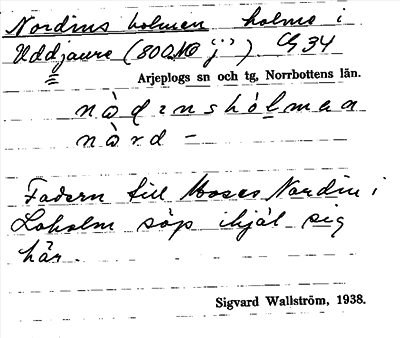 Nordins holmen holme i
Uddjaure (800 NO "j") Cg 34
Arjeplogs sn och tg, Norrbottens län.
nòḍınshólmen
nòrd –
Fadern till Moses Nordin i
Loholm söp ihjäl sig
här.
Sigvard Wallström, 1938.